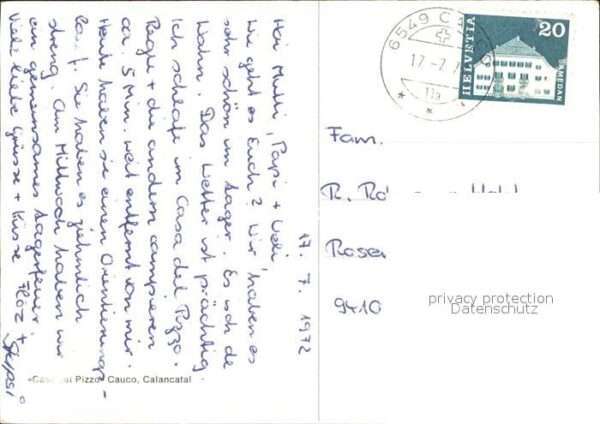 Hoi Mutti, Papi + Ueli,
Wie geht es Euch? Wir haben es
sehr schön im Lager. Es isch de
Wahn. Das Wetter ist prächtig.
Ich schlafe im Casa del Pozzo.
Regu + die andern campieren
ca. 5 Min. weit entfernt von mir.
Heute haben sie einen Orientierungs-
lauf. Sie haben es ziehmlich
streng. Am Mittwoch haben wir
ein gemeinsames Lagerfeuer.
Viele liebe Grüsse + Küsse
17. 7. 1972
Pizzo Cauco, Calancatal
6549
17.-7.
HELVETIA
20
SAMEDAN
Fam.
R.
Rosen
9410
privacy protection
Datenschutz